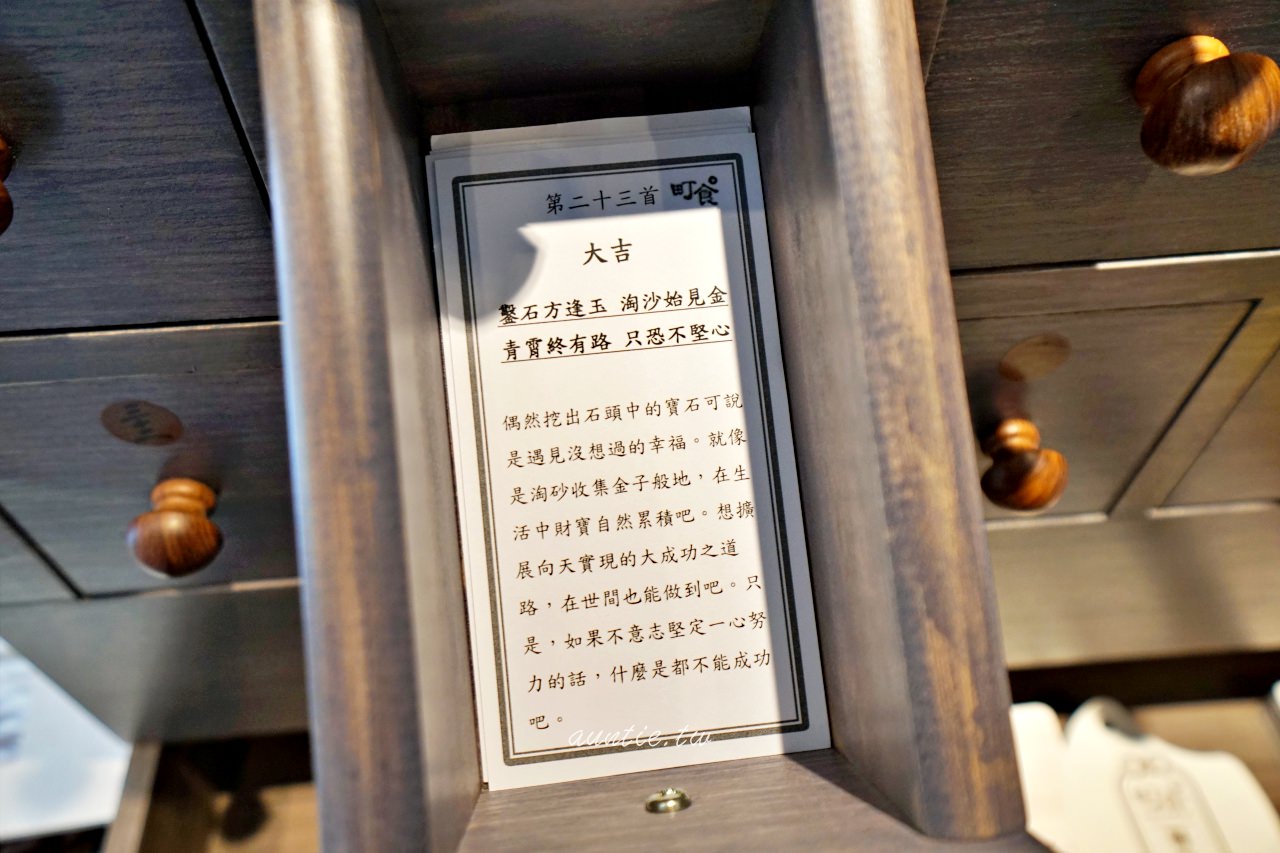 第二十三首 町食
大吉
鑿石方逢玉 淘沙始見金
青霄終有路 只恐不堅心
偶然挖出石頭中的寶石可說
是遇見沒想過的幸福。就像
是淘砂收集金子般地，在生
活中財寶自然累積吧。想擴
展向天實現的大成功之道
路，在世間也能做到吧。只
是，如果不意志堅定一心努
力的話，什麼是都不能成功
吧。
auntie.tw